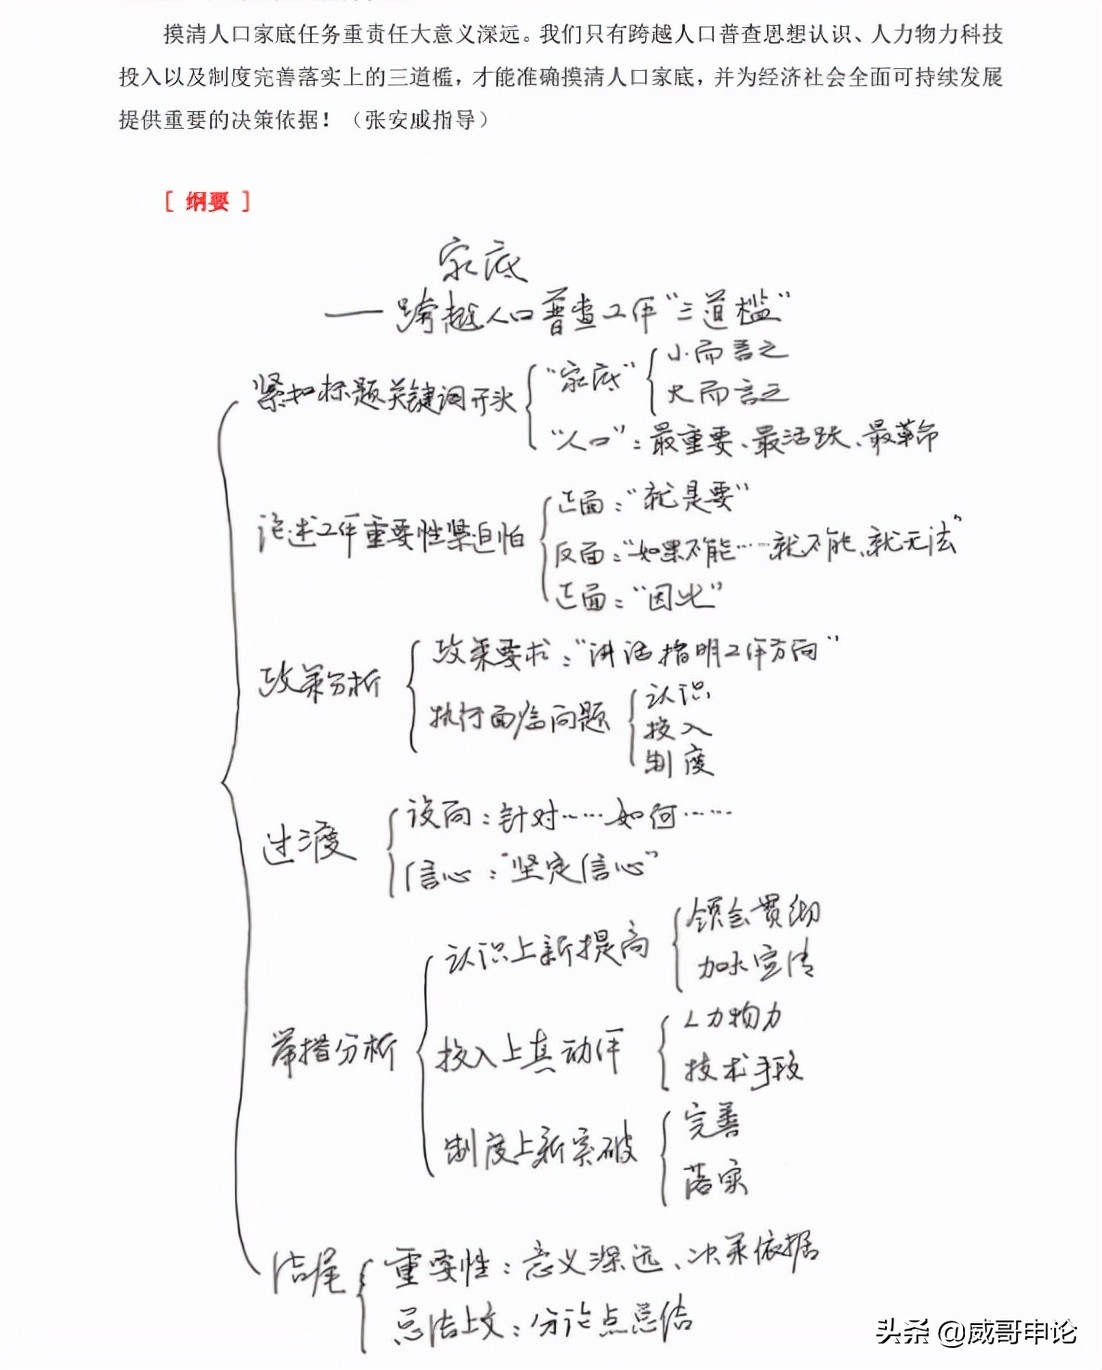 摸清人口家底任务重责任大意义深远。我们只有跨越人口普查思想认识、人力物力科技
投入以及制度完善落实上的三道槛，才能准确摸清人口家底，并为经济社会全面可持续发展
提供重要的决策依据！（张安戚指导）
[ 纲要 ]
家底
——跨越人口普查工作“三道槛”
紧扣标题关键词开头
“家底”
小而言之
大而言之
“人口”：最重要、最活跃、最革命
论述工作重要性紧迫性
正面：“就是要”
反面：“如果不能……就不能、就无法”
正面：“因此”
政策分析
政策要求：“讲话指明工作方向”
执行面临问题
认识
投入
制度
过渡
设问：针对……如何……
信心：“坚定信心”
举措分析
认识上新提高
领会贯彻
加大宣传
投入上真动作
人力物力
技术手段
制度上新突破
完善
落实
结尾
重要性：意义深远、决策依据
总结上文：分论点总结
头条 @威哥申论